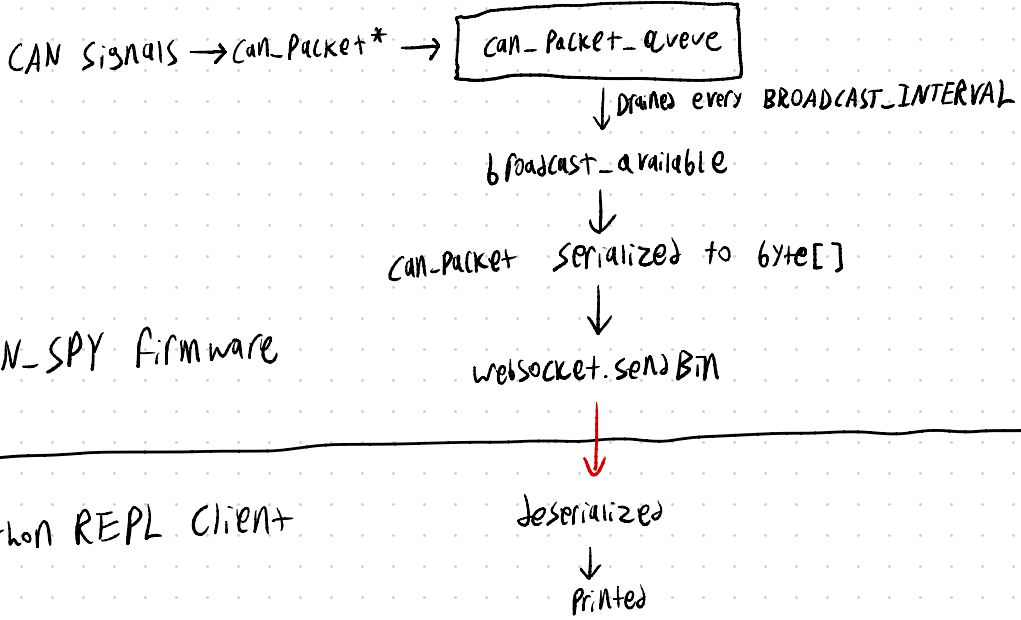 CAN Signals → can_Packet* →
can_Packet_queue
Drained every BROADCAST_INTERVAL
broadcast_available
can_Packet serialized to byte[]
N_SPY firmware
websocket.sendBin
deserialized
thon REPL Client
Printed